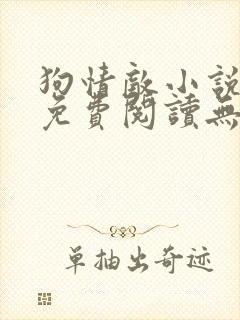 狗情敵小說
免費閱讀無
單抽出奇迹